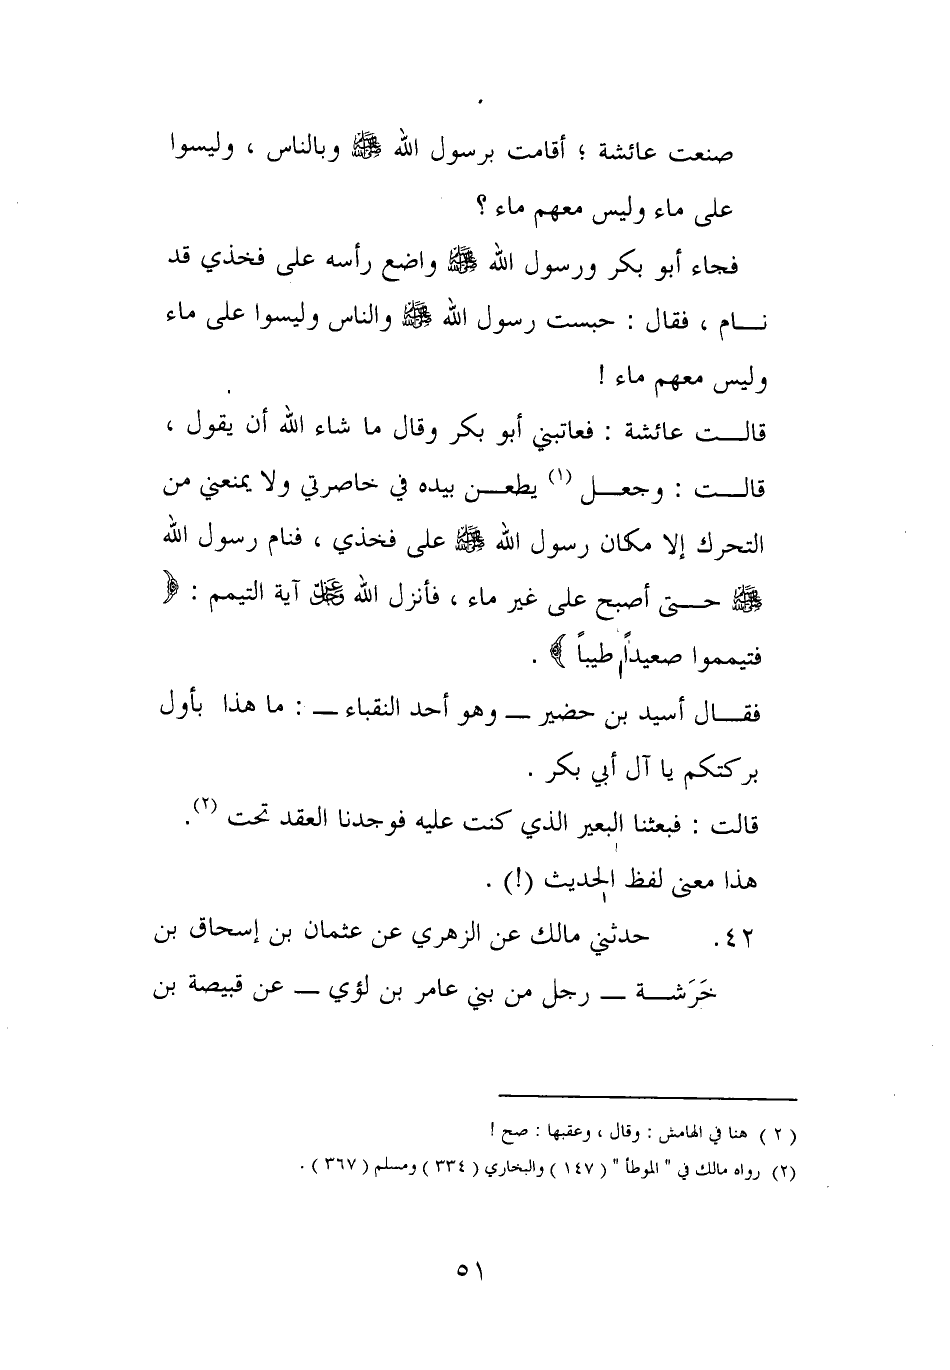 صنعت عائشة ؛ أقامت برسول الله ﷺ وبالناس ، وليسوا
على ماء وليس معهم ماء ؟
فجاء أبو بكر ورسول الله ﷺ واضع رأسه على فخذي قد
نـــام ، فقال : حبست رسول الله ﷺ والناس وليسوا على ماء
وليس معهم ماء !
قالـــت عائشة : فعاتبني أبو بكر وقال ما شاء الله أن يقول ،
قالـــت : وجعـــل (١) يطعـــن بيده في خاصرتي ولا يمنعني من
التحرك إلا مكان رسول الله ﷺ على فخذي ، فنام رسول الله
ﷺ حـــتى أصبح على غير ماء ، فأنزل الله عز وجل آية التيمم : ﴿
فتيمموا صعيداً طيباً ﴾ .
فقـــال أسيد بن حضير ــ وهو أحد النقباء ــ : ما هذا بأول
بركتكم يا آل أبي بكر .
قالت : فبعثنا البعير الذي كنت عليه فوجدنا العقد تحت (٢).
هذا معنى لفظ الحديث (!) .
٤٢. حدثني مالك عن الزهري عن عثمان بن إسحاق بن
خَرَشـــة ــ رجل من بني عامر بن لؤي ــ عن قبيصة بن
( ٢ ) هنا في الهامش : وقال ، وعقبها : صح !
(٢) رواه مالك في " الموطأ " ( ١٤٧ ) والبخاري ( ٣٣٤ ) ومسلم ( ٣٦٧ ) .
٥١